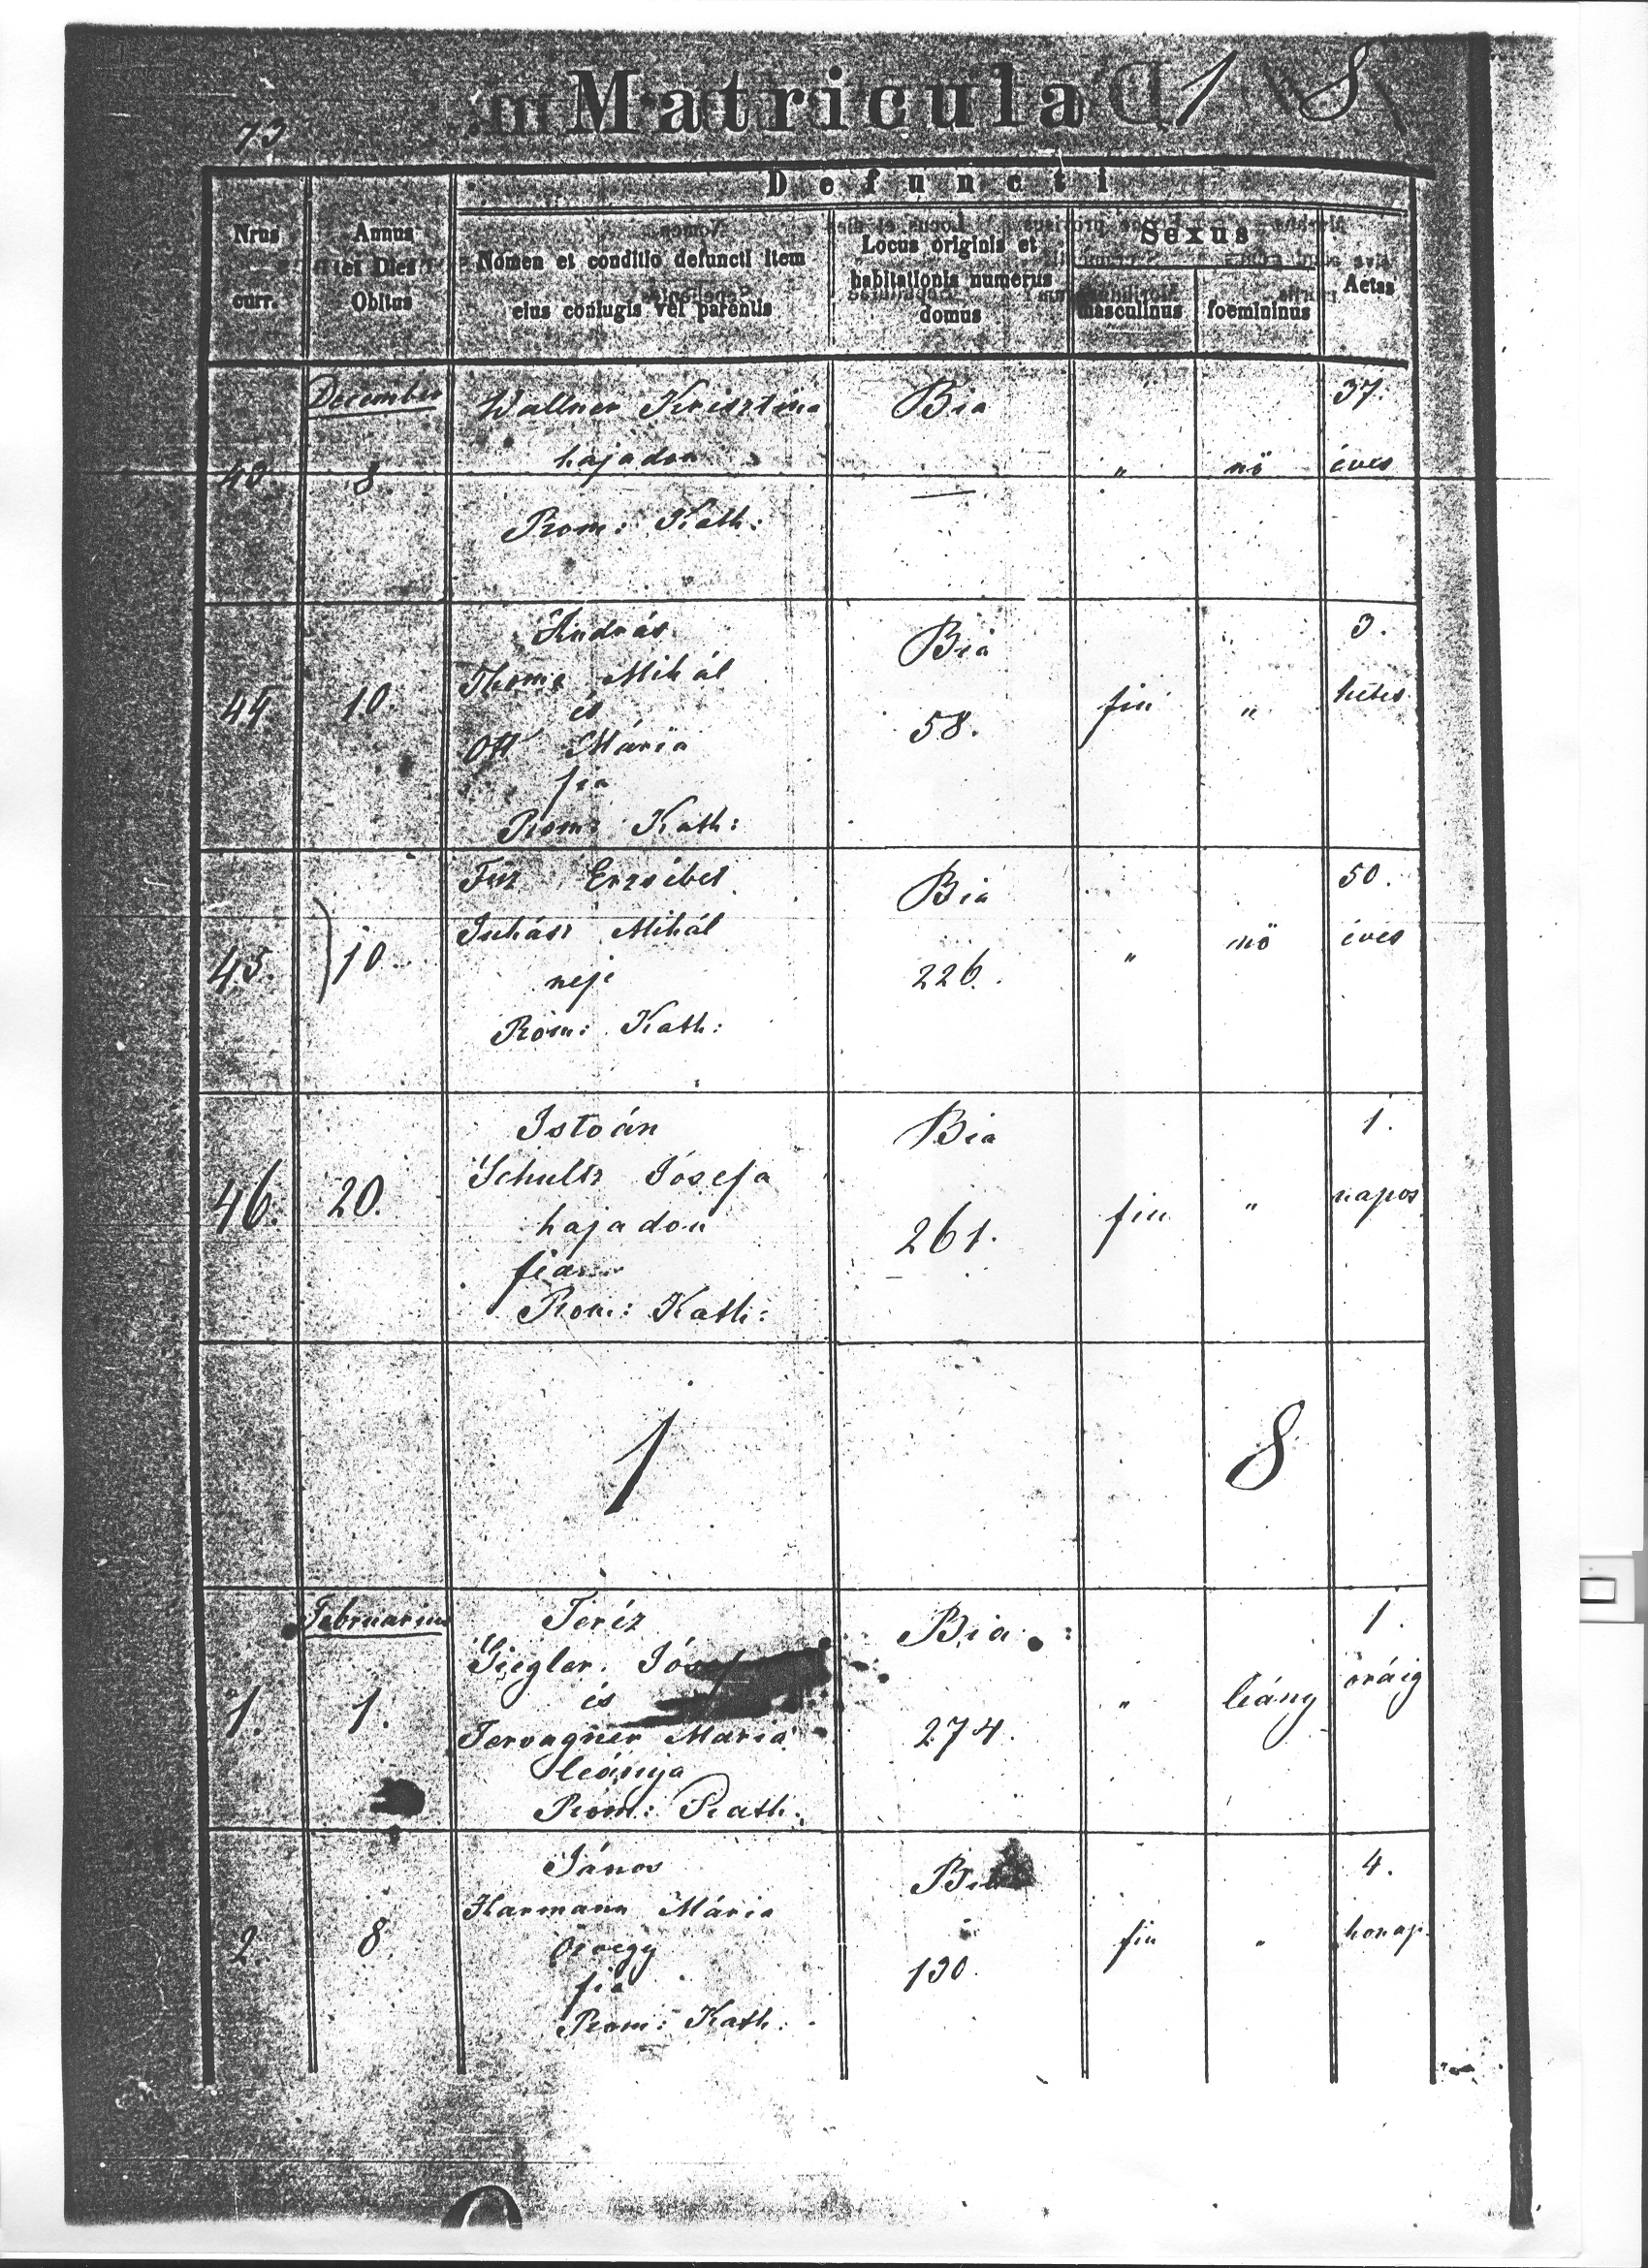 73
Matricula 1 8
Defuncti
Nrus
curr.
Annus
et Dies
Obitus
Nomen et conditio defuncti item
eius coniugis vel parentis
Locus originis et
habitationis numerus
domus
Sexus
masculinus
foemininus
Aetas
December
43. 8.
Wallner Krisztina
hajadon
Rom: Kath:
Bia
—
„ nö
37.
éves
44. 10.
András
Thoma Mihál
és
Ott Mária
fia
Rom: Kath:
Bia
58.
fiu „
3.
hetes
45. 10.
Füz Erzsébet
Juhász Mihál
neje
Rom: Kath:
Bia
226.
„ nö
50.
éves
46. 20.
István
Schultz Jósefa
hajadon
fia
Rom: Kath:
Bia
261.
fiu „
1.
napos
1 8
Februarius
1. 1.
Teríz
Ziegler Jósef
és
Mária
leánya
Rom: Kath.
Bia
274.
„ leány
1.
óráig
2. 8.
János
Harmann Mária
özvegy
fia
Rom: Kath.
Bia
130.
fiu „
4.
honap.